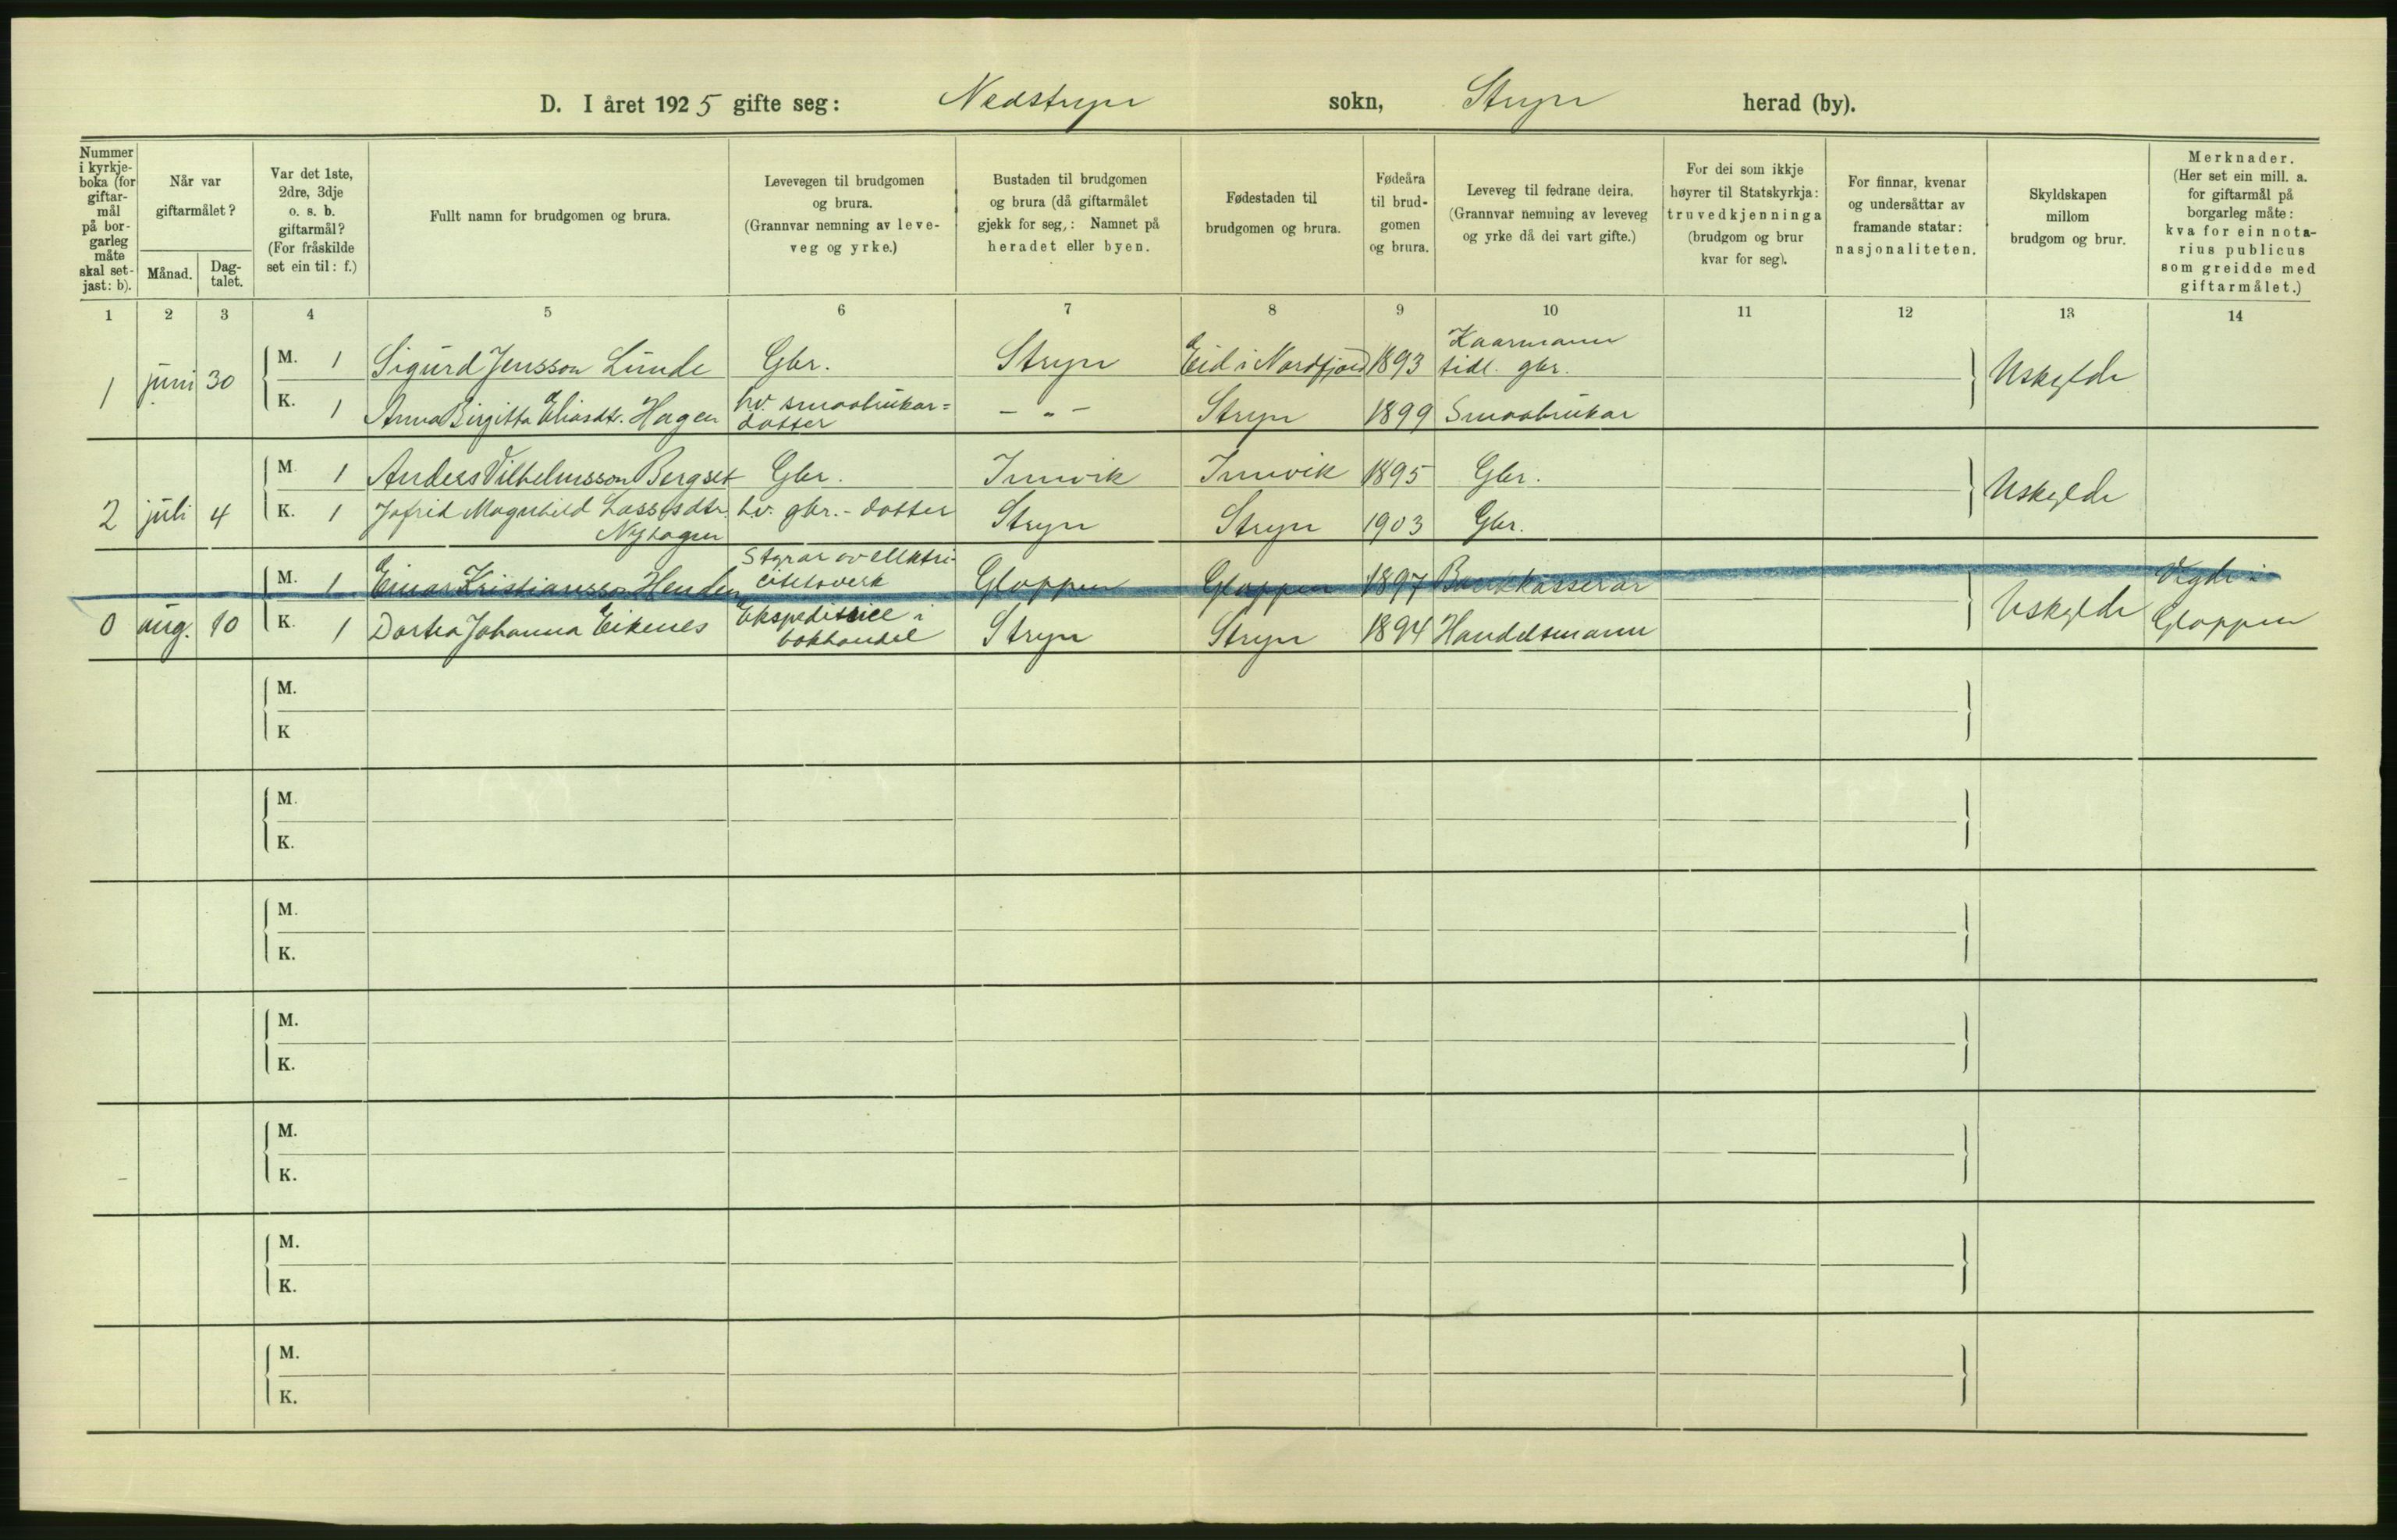 D. I året 1925 gifte seg: Nedstryn sokn, Stryn herad (by).
Nummer i kyrkje-boka (for giftar-mål på bor-garleg måte skal set-jast: b).
Når var giftarmålet?
Månad.
Dag-talet.
Var det 1ste, 2dre, 3dje o. s. b. giftarmål? (For fråskilde set ein til: f.)
Fullt namn for brudgomen og brura.
Levevegen til brudgomen og brura. (Grannvar nemning av leve-veg og yrke.)
Bustaden til brudgomen og brura (då giftarmålet gjekk for seg,: Namnet på heradet eller byen.
Fødestaden til brudgomen og brura.
Fødeåra til brud-gomen og brura.
Leveveg til fedrane deira. (Grannvar nemning av leveveg og yrke då dei vart gifte.)
For dei som ikkje høyrer til Statskyrkja: truvedkjenninga (brudgom og brur kvar for seg).
For finnar, kvenar og undersåttar av framande statar: nasjonaliteten.
Skyldskapen millom brudgom og brur.
Merknader. (Her set ein mill. a. for giftarmål på borgarleg måte: kva for ein nota-rius publicus som greidde med giftarmålet.)
1 2 3 4 5 6 7 8 9 10 11 12 13 14
1 juni 30 M. 1 Sigurd Jensson Lunde Gbr. Stryn Eid i Nordfjord 1893 Kaarmann tidl. gbr. Uskylde
K. 1 Anna Birgitta Eliasdtr. Hagen hv. smaabrukar= dotter — " — Stryn 1899 Smaabrukar
2 juli 4 M. 1 Anders Vilhelmsson Bergset Gbr. Innvik Innvik 1895 Gbr. Uskylde
K. 1 Jofrid Magnhild Lassesdtr. Nyhagen hv. gbr.- dotter Stryn Stryn 1903 Gbr.
0 aug. 10 M. 1 Einar Kristiansson Henden Styrar av elektri-citetsverk Gloppen Gloppen 1897 Bankkasserar Uskylde Vigde i Gloppen
K. 1 Dortea Johanna Eikenes Ekspeditrice i bokhandel Stryn Stryn 1894 Handelsmann
M.
K
M.
K.
M.
K.
M.
K.
M.
K.
M.
K.
M.
K.